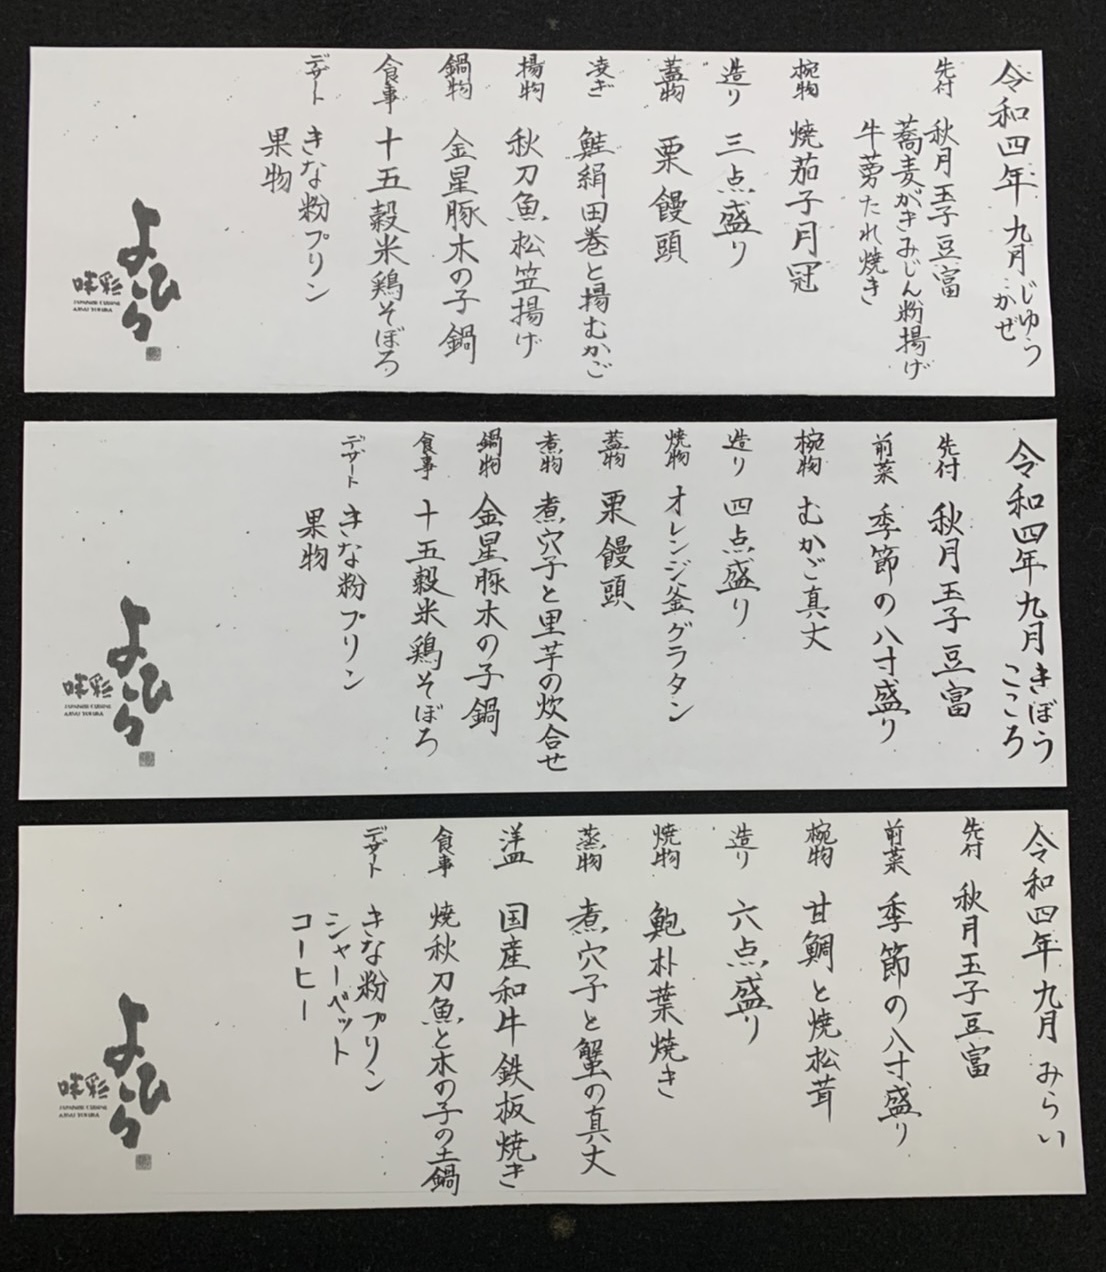 令和四年九月 じゆう
かぜ
先付 秋月玉子豆富
蕎麦がきみじん粉揚げ
牛蒡たれ焼き
椀物 焼茄子月冠
造り 三点盛り
蓋物 栗饅頭
凌ぎ 鮭絹田巻と揚むかご
揚物 秋刀魚松笠揚げ
鍋物 金星豚木の子鍋
食事 十五穀米鶏そぼろ
デザート きな粉プリン
果物
味彩和
よひら
JAPANESE CUISINE
令和四年九月 きぼう
こころ
先付 秋月玉子豆富
前菜 季節の八寸盛り
椀物 むかご真丈
造り 四点盛り
焼物 オレンジ釜グラタン
蓋物 栗饅頭
煮物 煮穴子と里芋の炊合せ
鍋物 金星豚木の子鍋
食事 十五穀米鶏そぼろ
デザート きな粉プリン
果物
よひら
JAPANESE CUISINE
令和四年九月 みらい
先付 秋月玉子豆富
前菜 季節の八寸盛り
椀物 甘鯛と焼松茸
造り 六点盛り
焼物 鮑朴葉焼き
蒸物 煮穴子と蟹の真丈
洋皿 国産和牛鉄板焼き
食事 焼秋刀魚と木の子の土鍋
デザート きな粉プリン
シャーベット
コーヒー
よひら
JAPANESE CUISINE